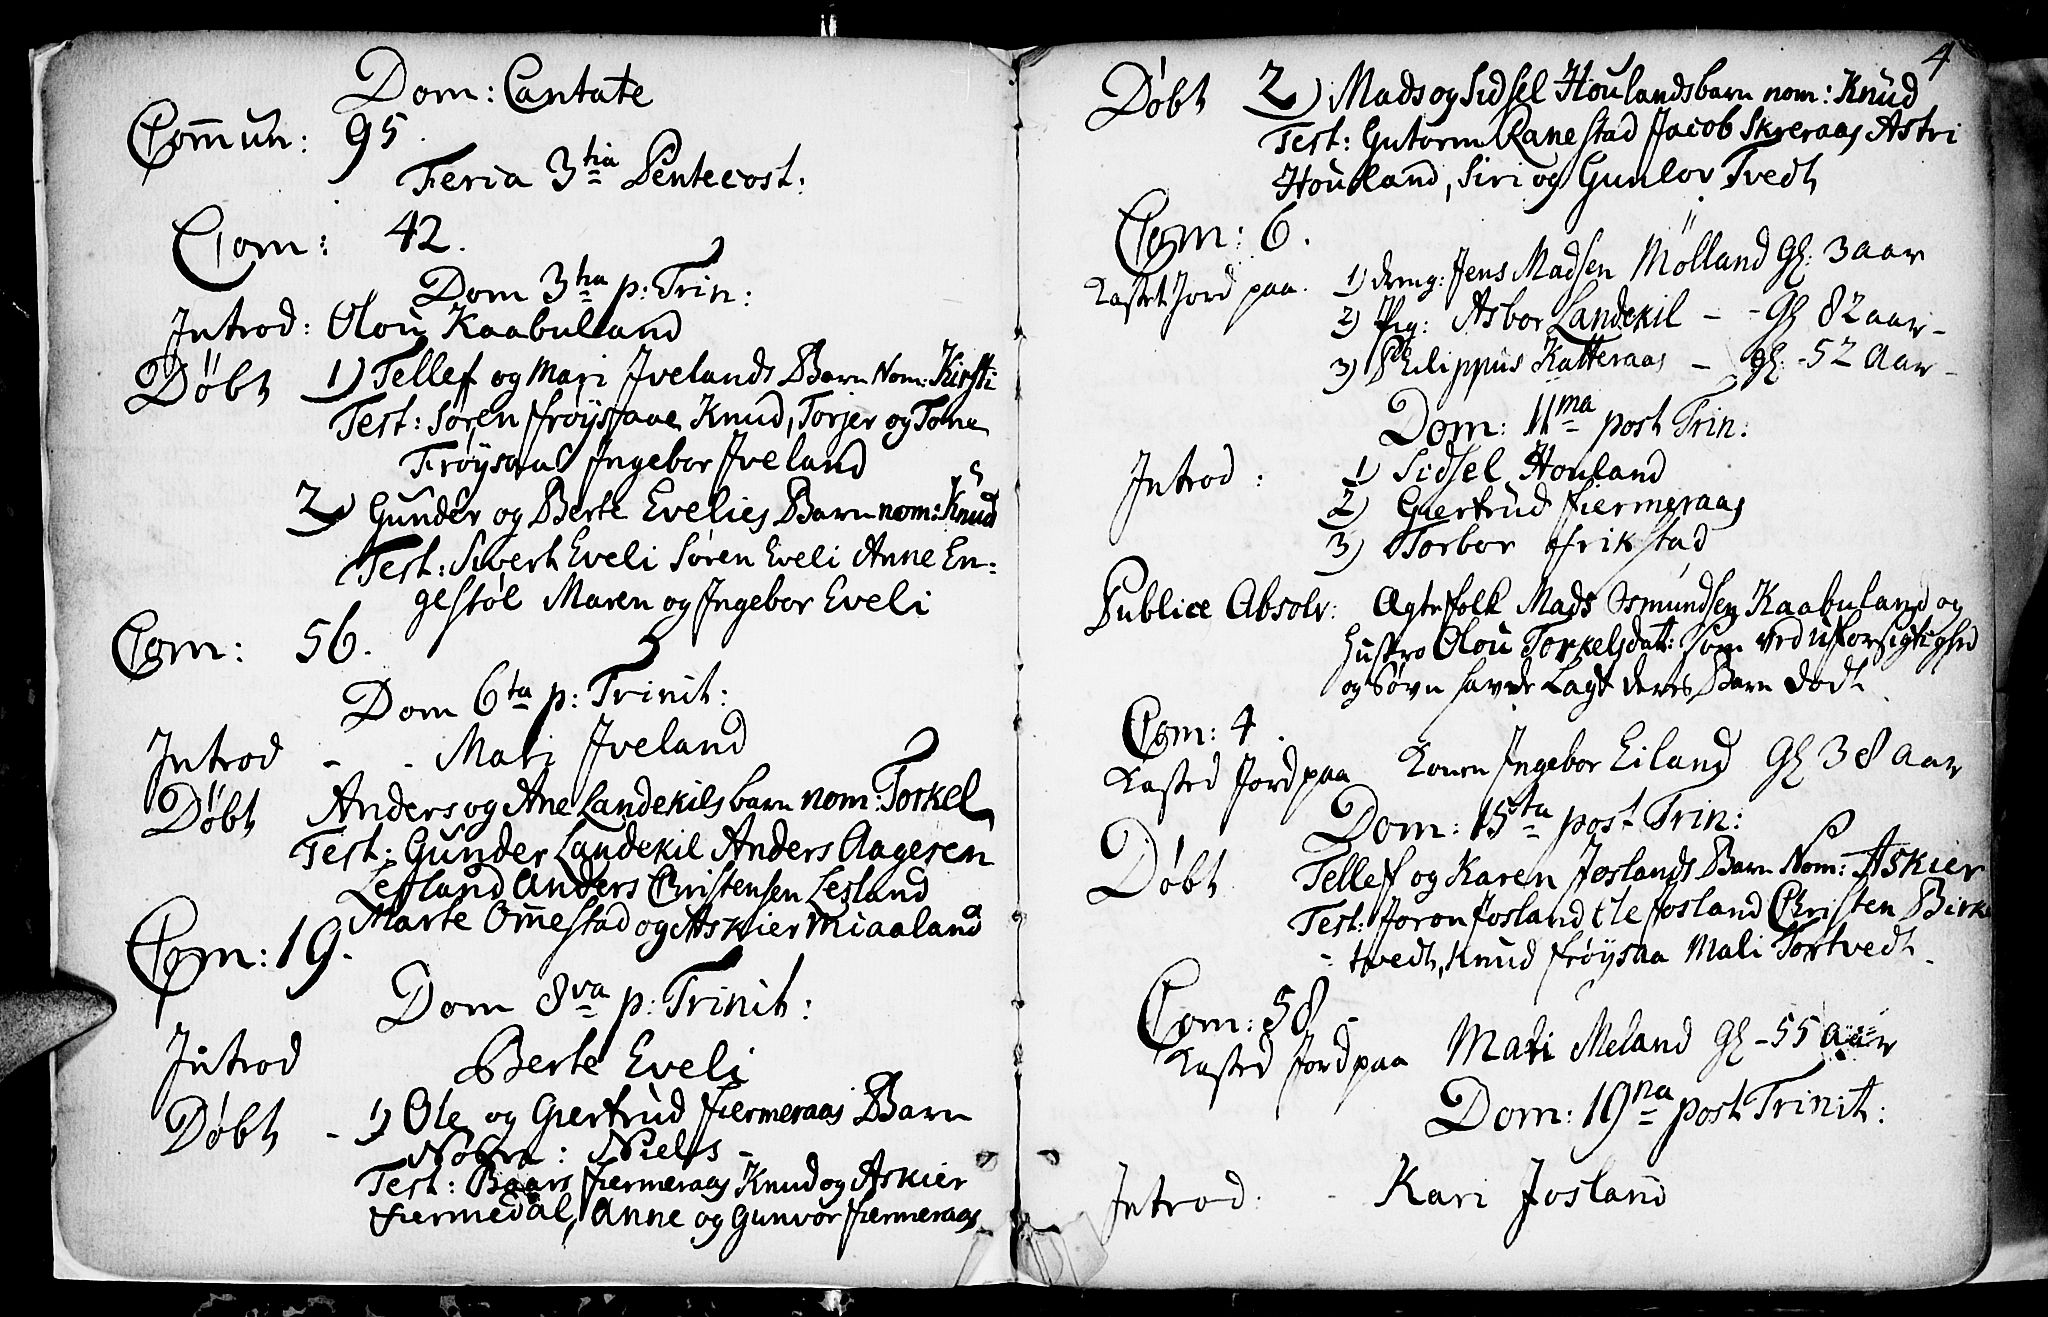 Dom: Cantate
Com̄un: 95.
Feria 3tia Pentecost:
Com: 42.
Dom 3tia p: Trin:
Introd: Olou Kaabuland
Døbt 1) Tellef og Mari Ivelands Barn Nom: Kirsti
Test: Søren frøysaae Knud, Torjer og Tone
Frøysaae Ingebor Iveland
2) Gunder og Berte Evelies Barn nom: Knud
Test: Sivert Eveli Søren Eveli Anne En=
gestøl Maren og Ingebor Eveli
Com: 56.
Dom 6ta p: Trinit:
Introd - - Mari Iveland
Døbt Anders og Ane Landekils barn nom: Torkel
Test: Gunder Landekil Anders Aagesen
Lesland Anders Christensen Lesland
Marte Om̄estad og Askier Miaaland
Com: 19.
Dom 8va p: Trinit:
Introd Berte Eveli
Døbt - 1) Ole og Giertrud fiermeraas Barn
Nom: Niels -
Test: Baars fiermeraas Knud og Askier
fiermedal, Anne og Gunvor fiermeraas
4
Døbt 2) Mads og Sidsel Houlands barn nom: Knud
Test: Gutorm Ranestad Jacob Skreraas Astri
Houland, Siri og Gunlov Tvedt
Com: 6.
Kastet Jord paa. 1) dreng: Jens Madsen Mölland Gl: 3 aar
2) Pig: Asbor Landekil - - Gl 82 aar -
3) Philippus Katteraas - gl: - 52 Aar -
Dom: 11ma post Trin:
Introd: 1) Sidsel Houland
2) Giertrud fiermeraas
3) Torbor frikstad
Publice Absolv: Ægtefolk Mads Osmundsen Kaabuland og
Hustro Olou Torkelsdatt: som ved uforsigtighed
og Søvn havde Lagt deres Barn dødt
Com: 4.
Kasted Jord paa Konen Ingebor Eiland Gl 38 aar
Dom: 15ta post Trin:
Døbt Tellef og Karen Joslands Barn Nom: Askier
Test: Joron Josland Ole Josland Christen Birke
- tvedt, Knud frøysaa Mali Tortvedt -
Com: 58 -
Kasted Jord paa Mari Meland Gl - 55 aar
Dom: 19na post Trinit:
Introd: - Kari Josland